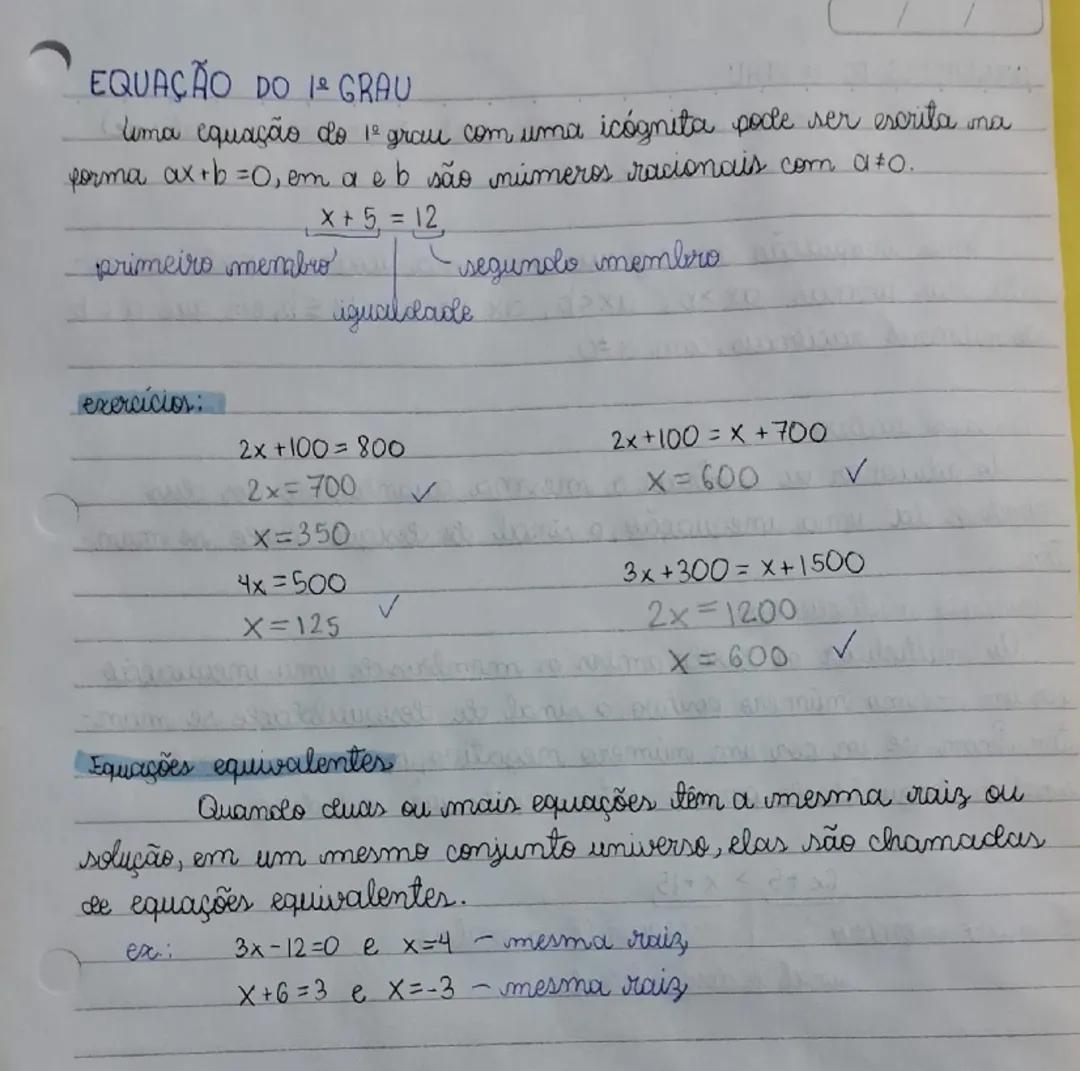 EQUAÇÃO DO 1º GRAU
Uma equação do 1º grau com uma icógnita pode ser escrita na
forma ax+b=0, em a e b são números racionais com a≠0.
x + 5 = 12
primeiro membro segundo membro
igualdade
exercícios:
2x+100=800 2x+100=x+700
2x=700 ✓ x=600 ✓
x=350
4x=500 3x+300=x+1500
x=125 ✓ 2x=1200
x=600 ✓
Equações equivalentes
Quando duas ou mais equações têm a mesma raiz ou
solução, em um mesmo conjunto universo, elas são chamadas
de equações equivalentes.
ex.: 3x-12=0 e x=4 - mesma raiz
x+6=3 e x=-3 - mesma raiz